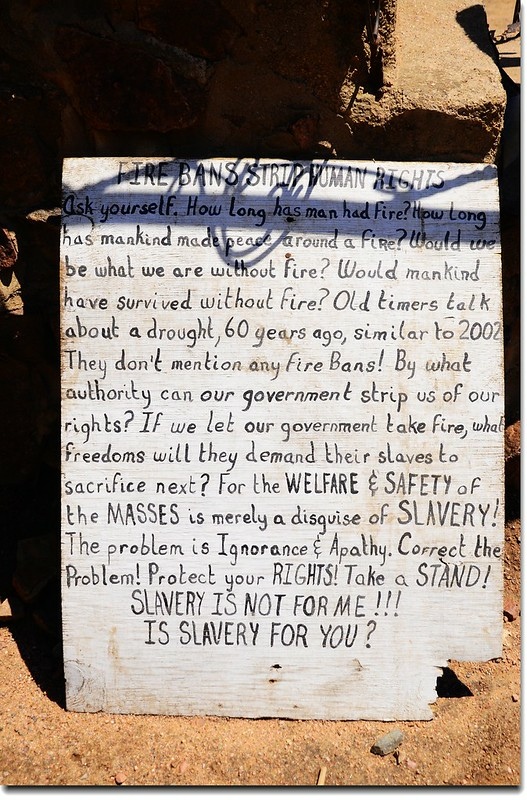 FIRE BANS STRIP HUMAN RIGHTS
Ask yourself. How long has man had fire? How long
has mankind made peace around a fire? Would we
be what we are without fire? Would mankind
have survived without fire? Old timers talk
about a drought, 60 years ago, similar to 2002
They don't mention any Fire Bans! By what
authority can our government strip us of our
rights? If we let our government take fire, what
freedoms will they demand their slaves to
sacrifice next? For the WELFARE & SAFETY of
the MASSES is merely a disguise of SLAVERY!
The problem is Ignorance & Apathy. Correct the
Problem! Protect your RIGHTS! Take a STAND!
SLAVERY IS NOT FOR ME!!!
IS SLAVERY FOR YOU?